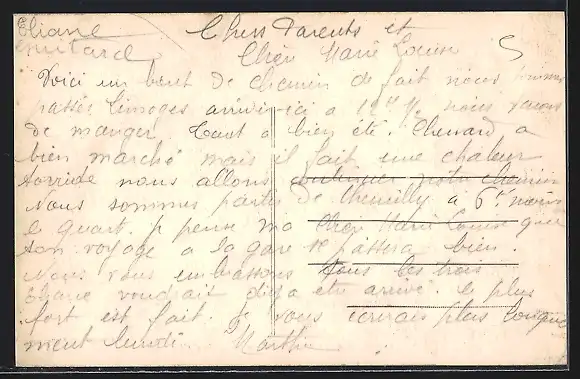 Eliane
Chers Parents et
Chère Marie Louise
Voici un bout de chemin de fait nous sommes
passés Limoges arrivé ici a 12h ½ nous venons
de manger. Tout a bien été. Chenard a
bien marché mais il fait une chaleur
torride nous allons continuer notre chemin
Nous sommes partis de Chemilly à 6h moins
le quart. Je pense ma Chère Marie Louise que
ton voyage a la gare se passera bien.
Nous vous embrassons tous les trois
Eliane voudrait déja etre arrivé. le plus
fort est fait. Je vous écrirais plus longue
ment lundi. Marthe